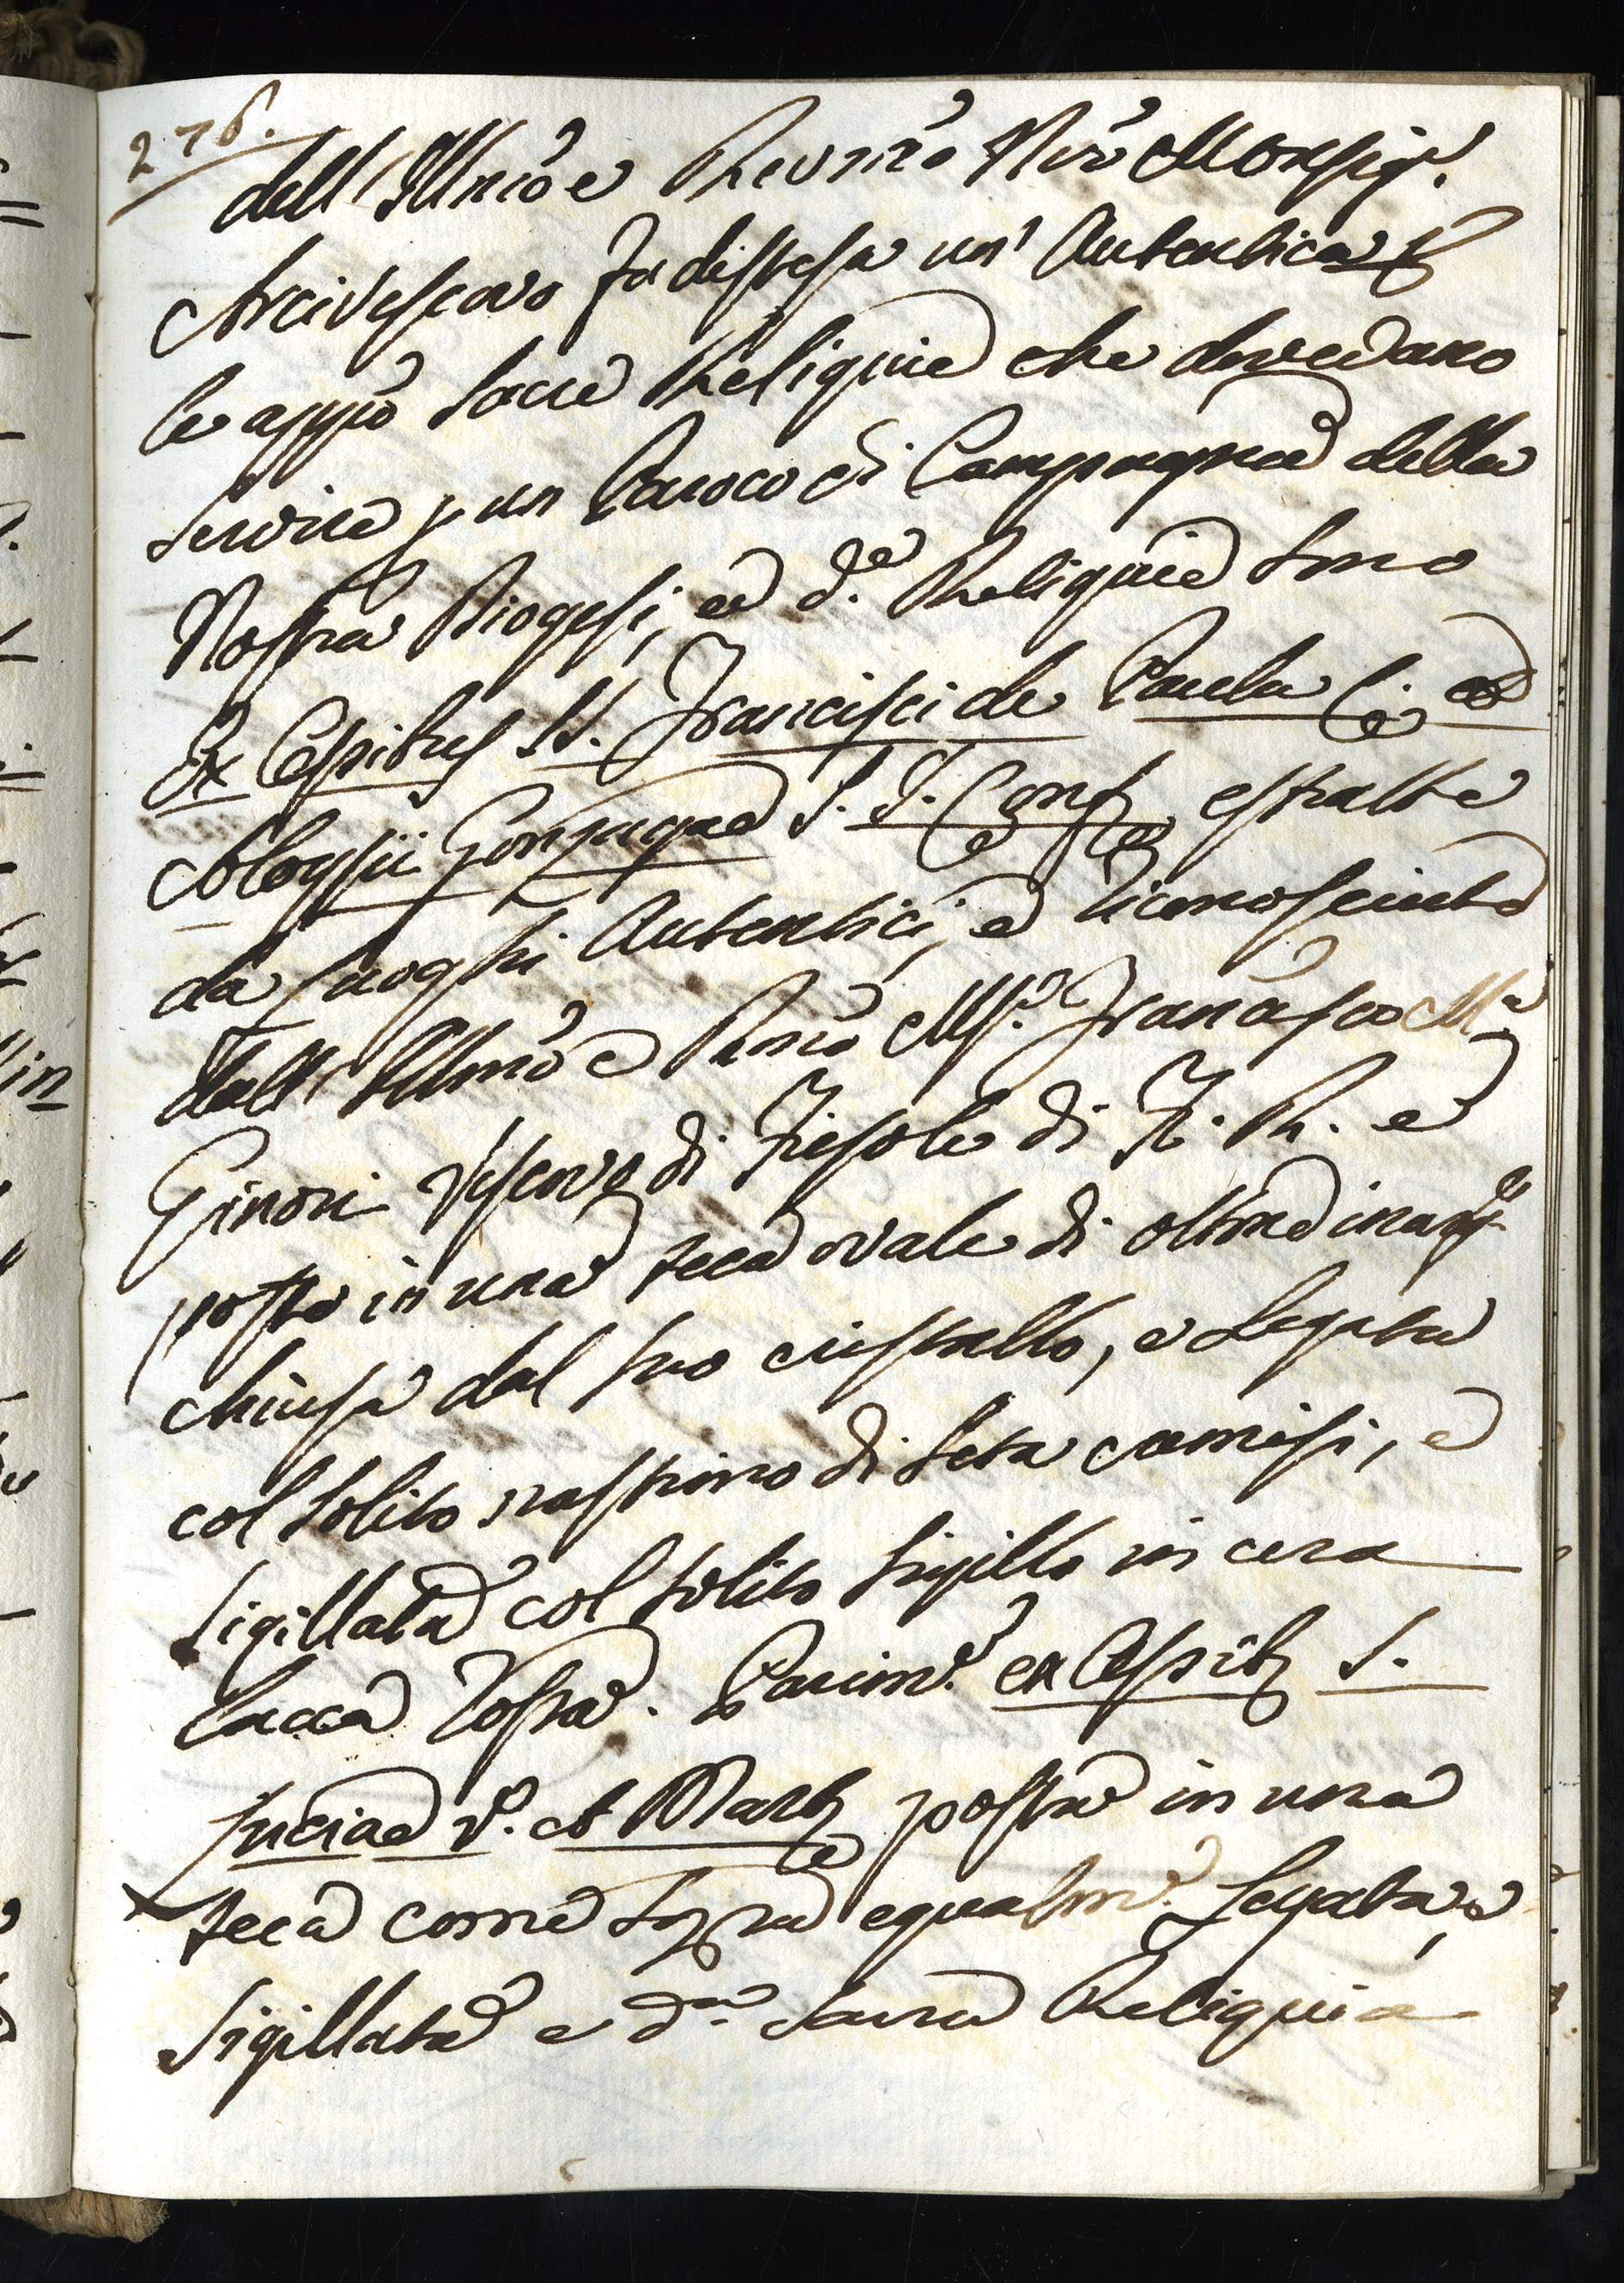 276.
dell'Illmo e Revmo Nro Monsigr.
Arcivescovo fu distesa un'Autentica p
le appio Sacre Reliquie che dovevano
servire p un Paroco di Campagna della
Nostra Diogesi, e d.e Reliquie sono
Ex Cossibus SS. Francisci de Paula C. et
Aloysii Gonzagae S. I. Conf. estratte
da Luoghi Autentici, e riconosciute
dall'Illmo e Rmo Mr. Francesco Ma
Ginori Vescovo di Fiesole di F. R. e
poste in una teca ovale di ottone inarg.
chiusa dal suo cristallo, e Legata
col solito nastrino di seta cremisi, e
sigillata col solito sigillo in cera
lacca rossa. Parimte. ex Ossib S.
Luciae V. et Mart posta in una
teca come sopra egualme. Legata, e
sigillata e d.a Sacra Reliquia